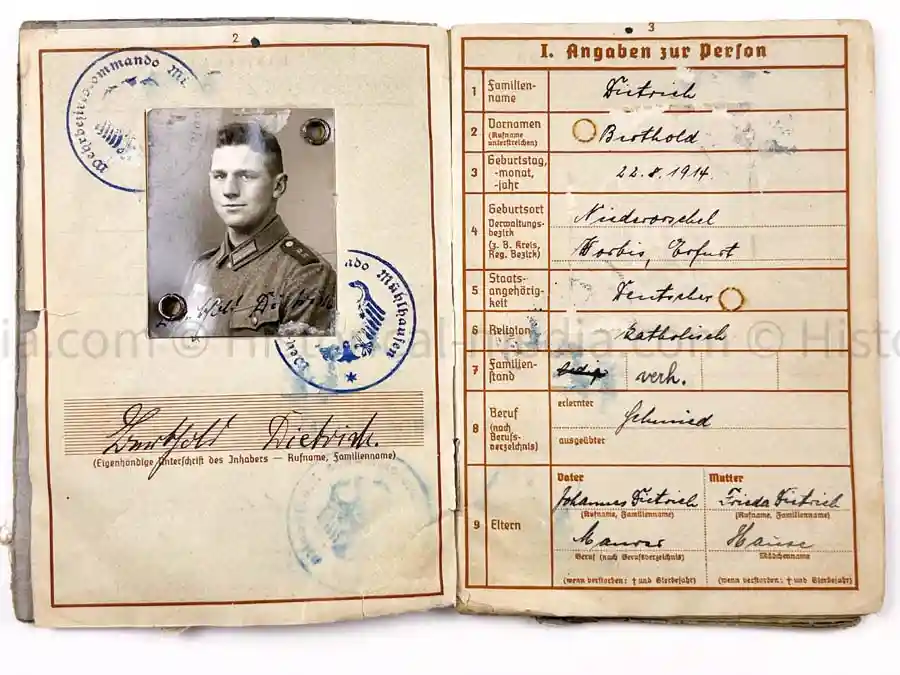 2
Wehrbezirkskommando Mühlhausen
Berthold Dietrich.
(Eigenhändige Unterschrift des Inhabers — Rufname, Familienname)
3
I. Angaben zur Person
1 Familien-
name
Dietrich
2 Vornamen
(Rufname
unterstreichen)
Berthold
3 Geburtstag,
-monat,
-jahr
22.8.1914.
4 Geburtsort
Verwaltungs-
bezirk
(z. B. Kreis,
Reg. Bezirk)
Niederorschel
Worbis, Erfurt
5 Staats-
angehörig-
keit
Deutscher
6 Religion
katholisch
7 Familien-
stand
ledig verh.
8 Beruf
(nach
Berufs-
verzeichnis)
erlernter
Schmied
ausgeübter
9 Eltern
Vater
Johannes Dietrich
(Rufname, Familienname)
Maurer
Beruf (nach Berufsverzeichnis)
(wenn verstorben: † und Sterbejahr)
Mutter
Frieda Dietrich
(Rufname, Familienname)
Mädchenname
(wenn verstorben: † und Sterbejahr)
ia.com © Historical-media.com © Histo